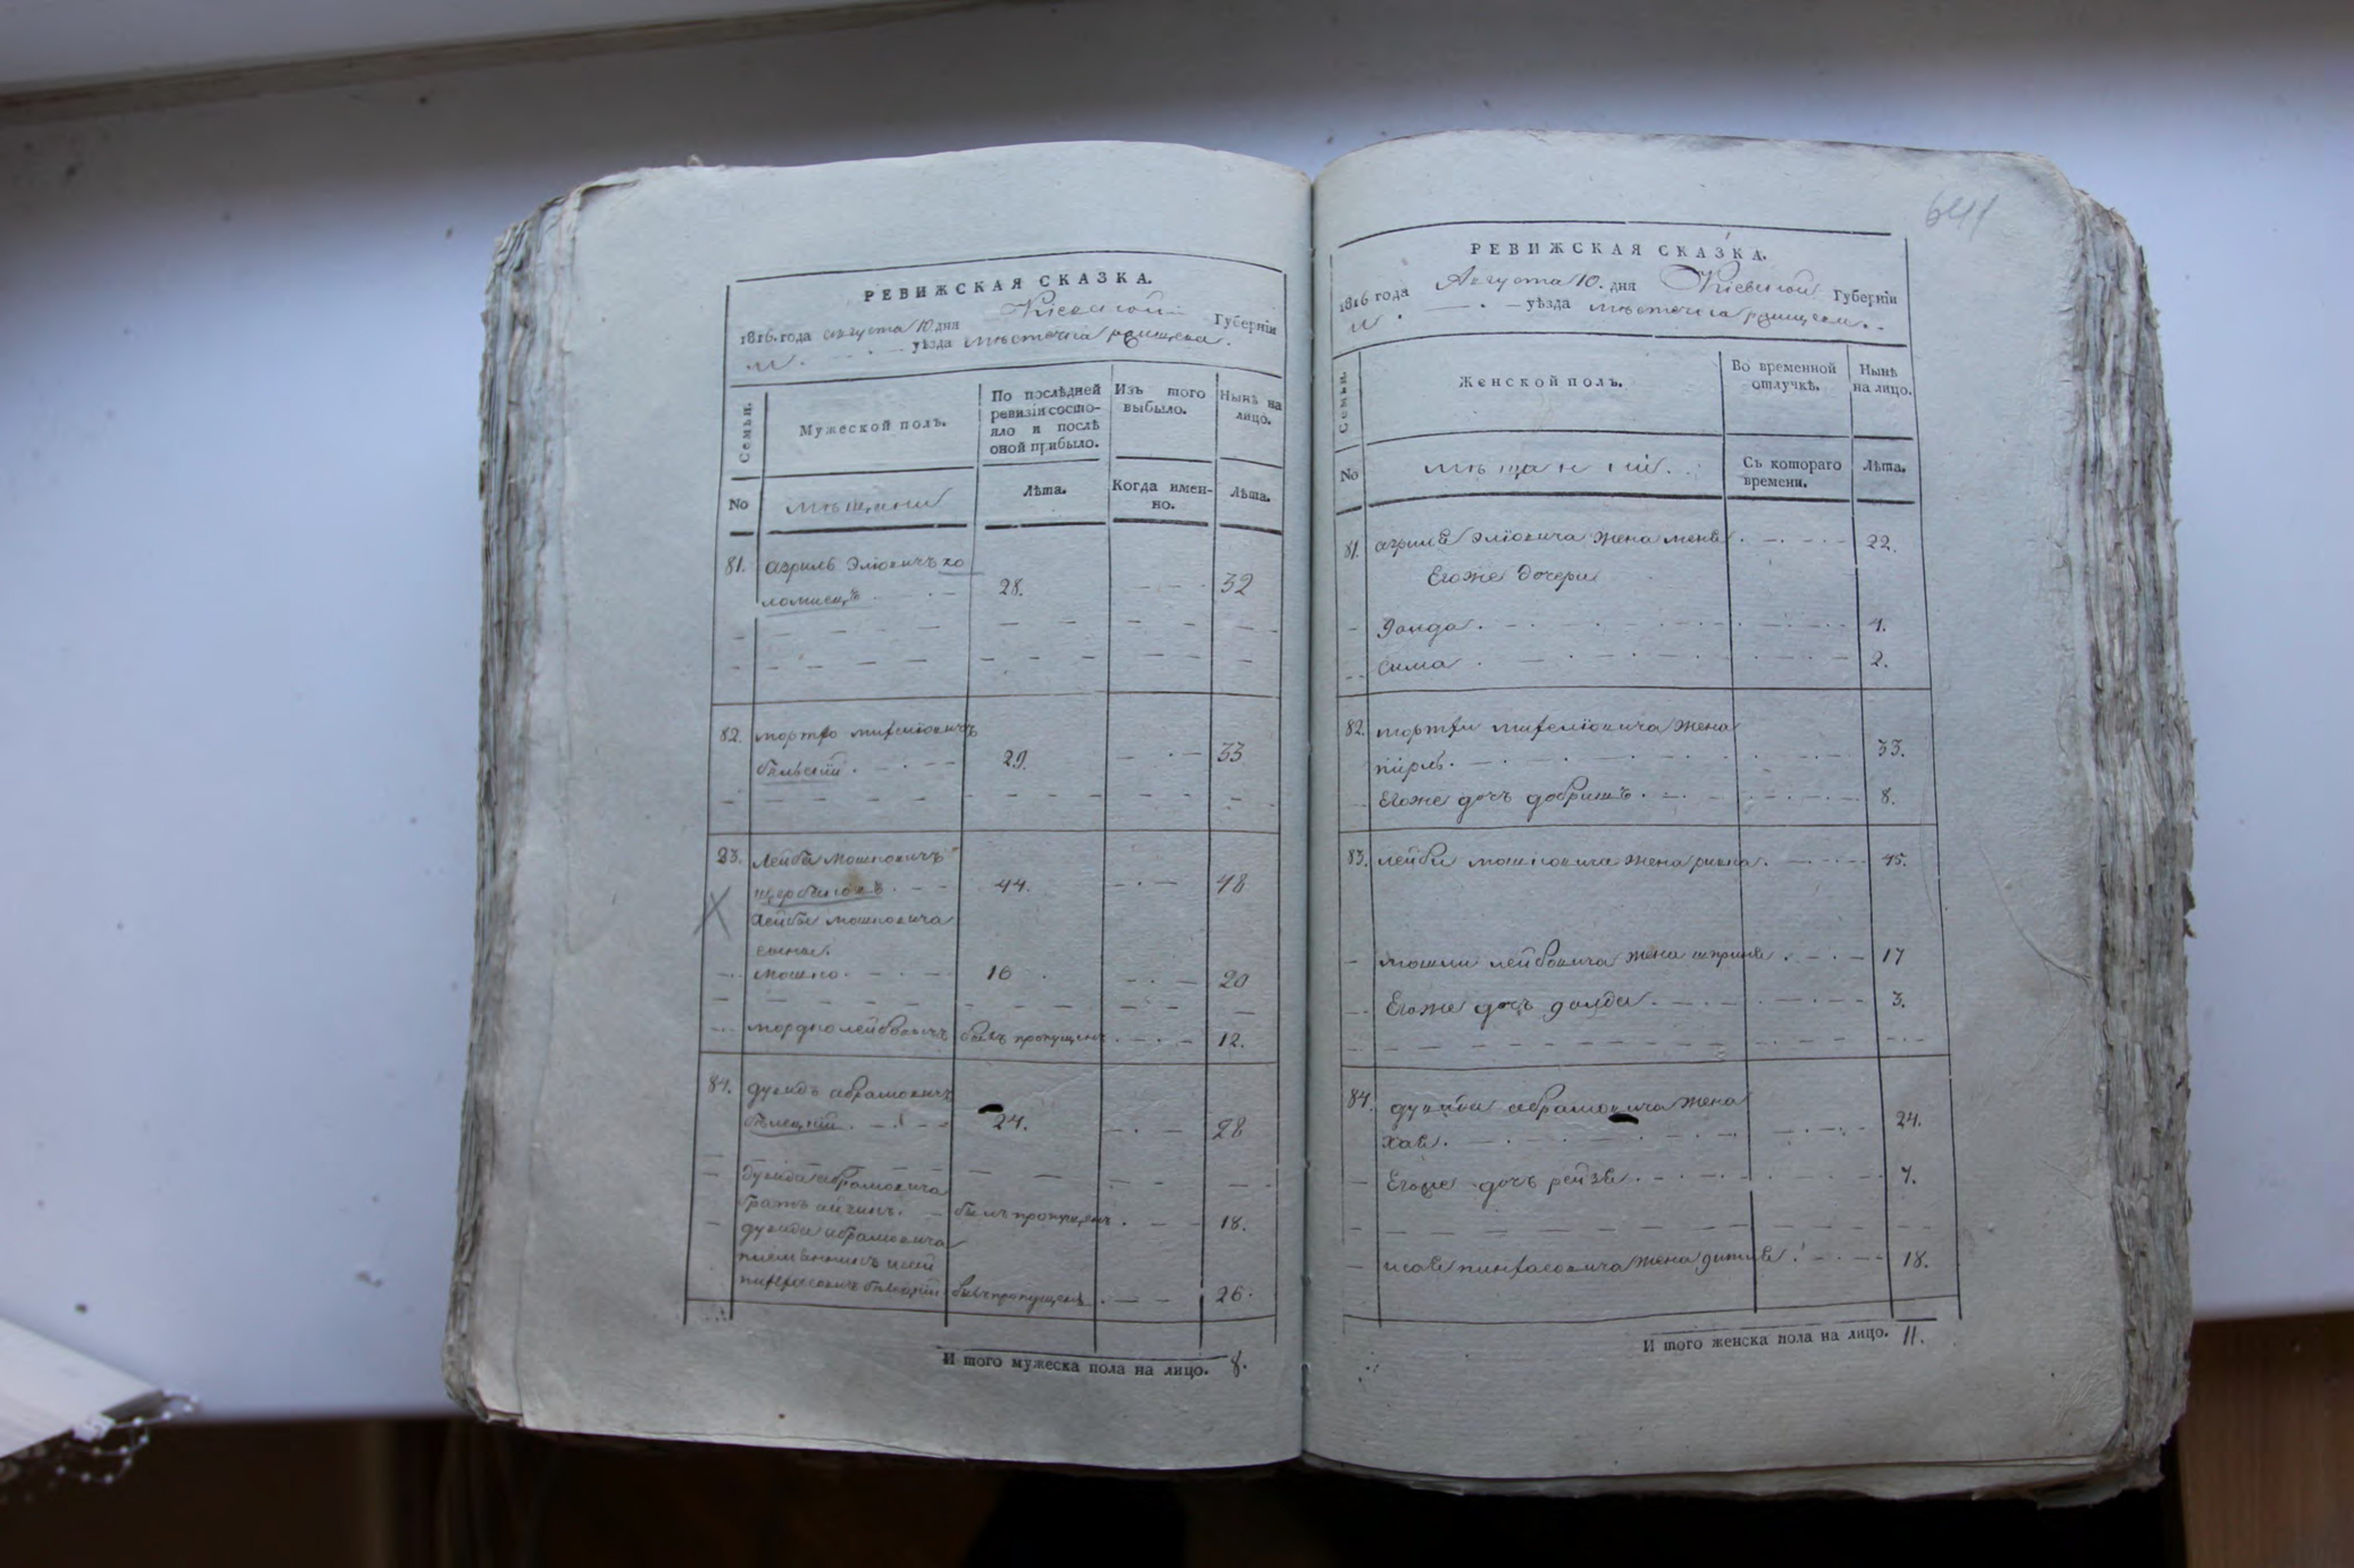 РЕВИЖСКАЯ СКАЗКА.
1816. года августа 10 дня Кіевской Губерніи
уѣзда мѣстечка
Семьи.
Мужеской полъ.
По послѣдней ревизіи состо-
яло и послѣ
оной прибыло.
Изъ того
выбыло.
Нынѣ на
лицо.
No
мѣщани
Лѣта.
Когда имен-
но.
Лѣта.
81. азриль эліовичъ ко
ломиецъ 28. 32
82. мортхо
бѣльскій 29. 33
83. Лейба мошковичъ
щербинокъ 44. 48
Лейбы мошковича
сыны.
мошко. 16 20
мордко лейбовичъ былъ пропущенъ 12.
84. дувидъ абрамовичъ
бѣлецкій 24. 28
дувида абрамовича
братъ былъ пропущенъ 18.
дувида абрамовича
племянникъ
былъ пропущенъ 26.
И того мужеска пола на лицо. 8.
641
РЕВИЖСКАЯ СКАЗКА.
1816 года Августа 10. дня Кіевской Губерніи
уѣзда мѣстечка
Семьи.
Женской полъ.
Во временной
отлучкѣ.
Нынѣ
на лицо.
No
Съ котораго
времени.
Лѣта.
81. азриля эліовича жена 22.
Егоже дочери
4.
сима 2.
82. жена
пірль 33.
Егоже дочъ добришъ 8.
83. лейбы мошковича жена ривка 45.
мошки лейбовича жена 17
Егоже дочъ 3.
84. дувида абрамовича жена
хая. 24.
Егоже дочъ рейзя 7.
жена 18.
И того женска пола на лицо. 11.